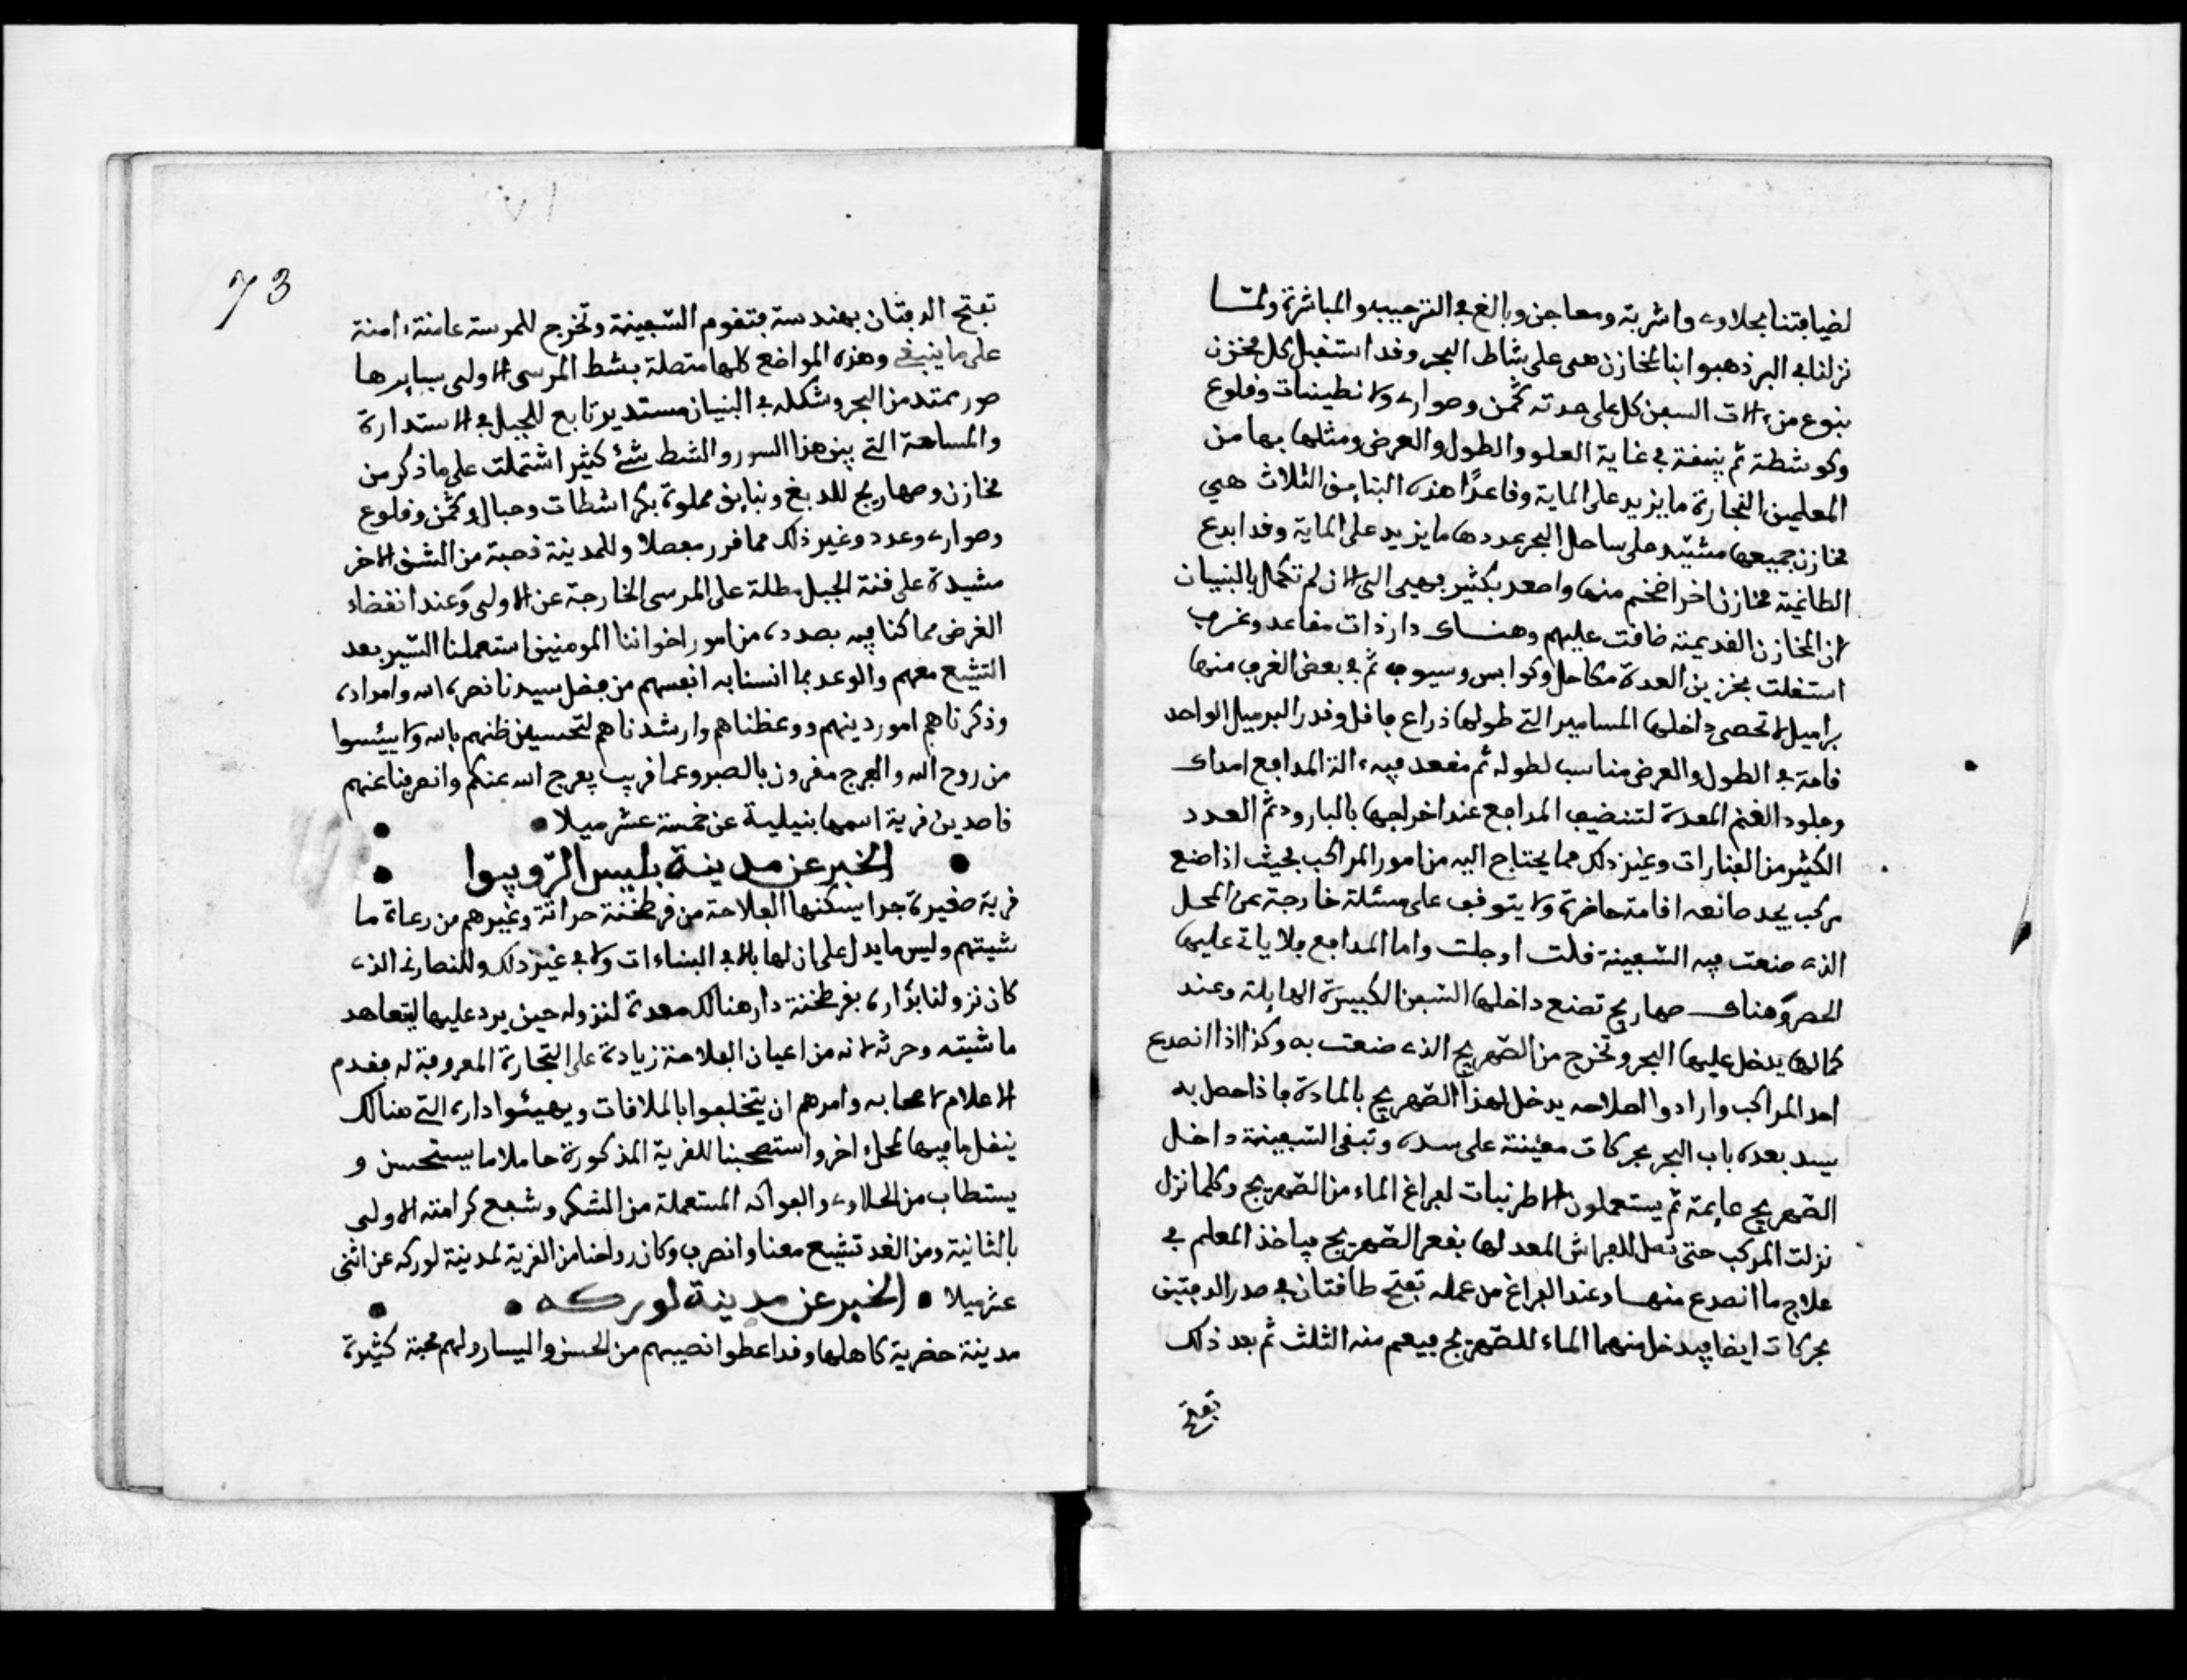 لضيافتنا بحلاوى واشربة ومعاجن وبالغ في الترحيب والمباشرة ولمّا
نزلنا في البر ذهبوا بنا لمخازن هي على شاطئ البحر وقد استقبل كل مخزن
بنوع من ءالات السفن كل على حدته كمخن وصواري ولانطينات وقلوع
وكوشطة ثم بنيقة في غاية العلو والطول والعرض ومثلها بها من
المعلمين النجارة ما يزيد على الماية وقاعدًا هذه البنايق الثلاث هي
مخازن جميعها مشيّد على ساحل البحر عددها ما يزيد على الماية وقد ابدع
الطاغية مخازن اخر اضخم منها واصعد بكثير بهيى التى الان لم تكمل بالبنيان
لان المخازن القديمة ضاقت عليهم وهناك دار ذات مقاعد وغرف
استغلت بخزين العدة مكاحل وكوابس وسيوف ثم في بعض الغرف منها
براميل لا تحصى داخلها المسامير التي طولها ذراع فاقل وقدر البرميل الواحد
قامة في الطول والعرض مناسب لطوله ثم مقعد فيه ءالة المدافع امداك
وجلود الغنم المعدة لتنضيف المدافع عند اخراجها بالبارود ثم العدد
الكثير من الفنارات وغير ذلك مما يحتاج اليه من امور المراكب بحيث اذا صنع
مركب يجد صانعه اقامته حاضرة ولا يتوقف على مسئلة خارجة عن المحل
الذى صنعت فيه السّفينة قلت او جلت واما المدافع فلا ياتي عليها
الحصر وهناك صهاريج تصنع داخلها السّفن الكبيرة الهايلة وعند
كمالها يدخل عليها البحر وتخرج من الصّهريج الذى صنعت به وكذا اذا انصدع
احد المراكب وارادوا اصلاحه يدخل لهذا الصّهريج بالمادة فاذا حصل به
يسد بعده باب البحر بحركات معينة على سده وتبقى السّفينة داخل
الصّهريج عايمة ثم يستعملون الاطرنبات لفراغ الماء من الصّهريج وكلما نزل
نزلت المركب حتى تصل للفراش المعد لها بقعر الصّهريج فياخذ المعلم في
علاج ما انصدع منها وعند الفراغ من عمله تفتح طاقتان في صدر الدفتين
بحركات ايضا فيدخل منهما الماء للصّهريج فيعم منه الثلث ثم بعد ذلك
تفتح
73
٧١
تفتح الدفتان بهندسة فتقوم السّفينة وتخرج للمرسة عامنة ءامنة
على ما ينبغي وهذه المواضع كلها متصلة بشط المرسى الاولى يسايرها
صور ممتد من البحر وشكله في البنيان مستدير تابع للجبل في الاستدارة
والمساحة التي بين هذا السور والشط شئ كثير اشتملت على ما ذكر من
مخازن وصهاريج للدبغ وبنايق مملوة بكراشطات وحبال وكمخن وقلوع
وصوارى وعدد وغير ذلك مما قرر مفصلا وللمدينة قصبة من الشق الاخر
مشيدة على قنة الجبل مطلة على المرسى الخارجة عن الاولى وعند انقضاء
الغرض مما كنا فيه بصدده من امور اخواننا المومنين استعملنا السّير بعد
التشيع معهم والوعد بما انسنا به انفسهم من فضل سيدنا نصره الله وامداده
وذكرناهم امور دينهم ووعظناهم وارشدناهم لتحسين ظنهم بالله ولا ييئسوا
من روح الله والفرج مقرون بالصبر وعما قريب يفرج الله عنكم وانصرفنا عنهم
قاصدين قرية اسمها بنيلية عن خمسة عشر ميلا
الخبر عن مدينة بليس الرّوبيوا
قرية صغيرة جدا يسكنها الفلاحة من قرطخنة حراثة وغيرهم من رعاة ما
شيتهم وليس ما يدل على ان لها بالا في البناءات ولا في غير ذلك وللنصارني الذى
كان نزولنا بداره بقرطخنة دار هنالك معدة لنزوله حين يرد عليها ليتعاهد
ماشيته وحرثه لانه من اعيان الفلاحة زيادة على التجارة المعروفة له فقدم
الاعلام لاصحابه وامرهم ان يتخلفوا بالملاقات ويهيئوا داره التي هنالك
بنقل ما فيها لمحل ءاخر واستصحبنا للقرية المذكورة حاملا ما يستحسن و
يستطاب من الحلاوى والفواكه المستعملة من السّكر وشفع كرامته الاولى
بالثانية ومن الغد تشيع معنا وانصرف وكان رواحنا من القرية لمدينة لوركه عن اثنى
عشر ميلا الخبر عن مدينة لوركه
مدينة حضرية كاهلها وقد اعطوا نصيبهم من الحسن واليسار ولهم محبة كثيرة